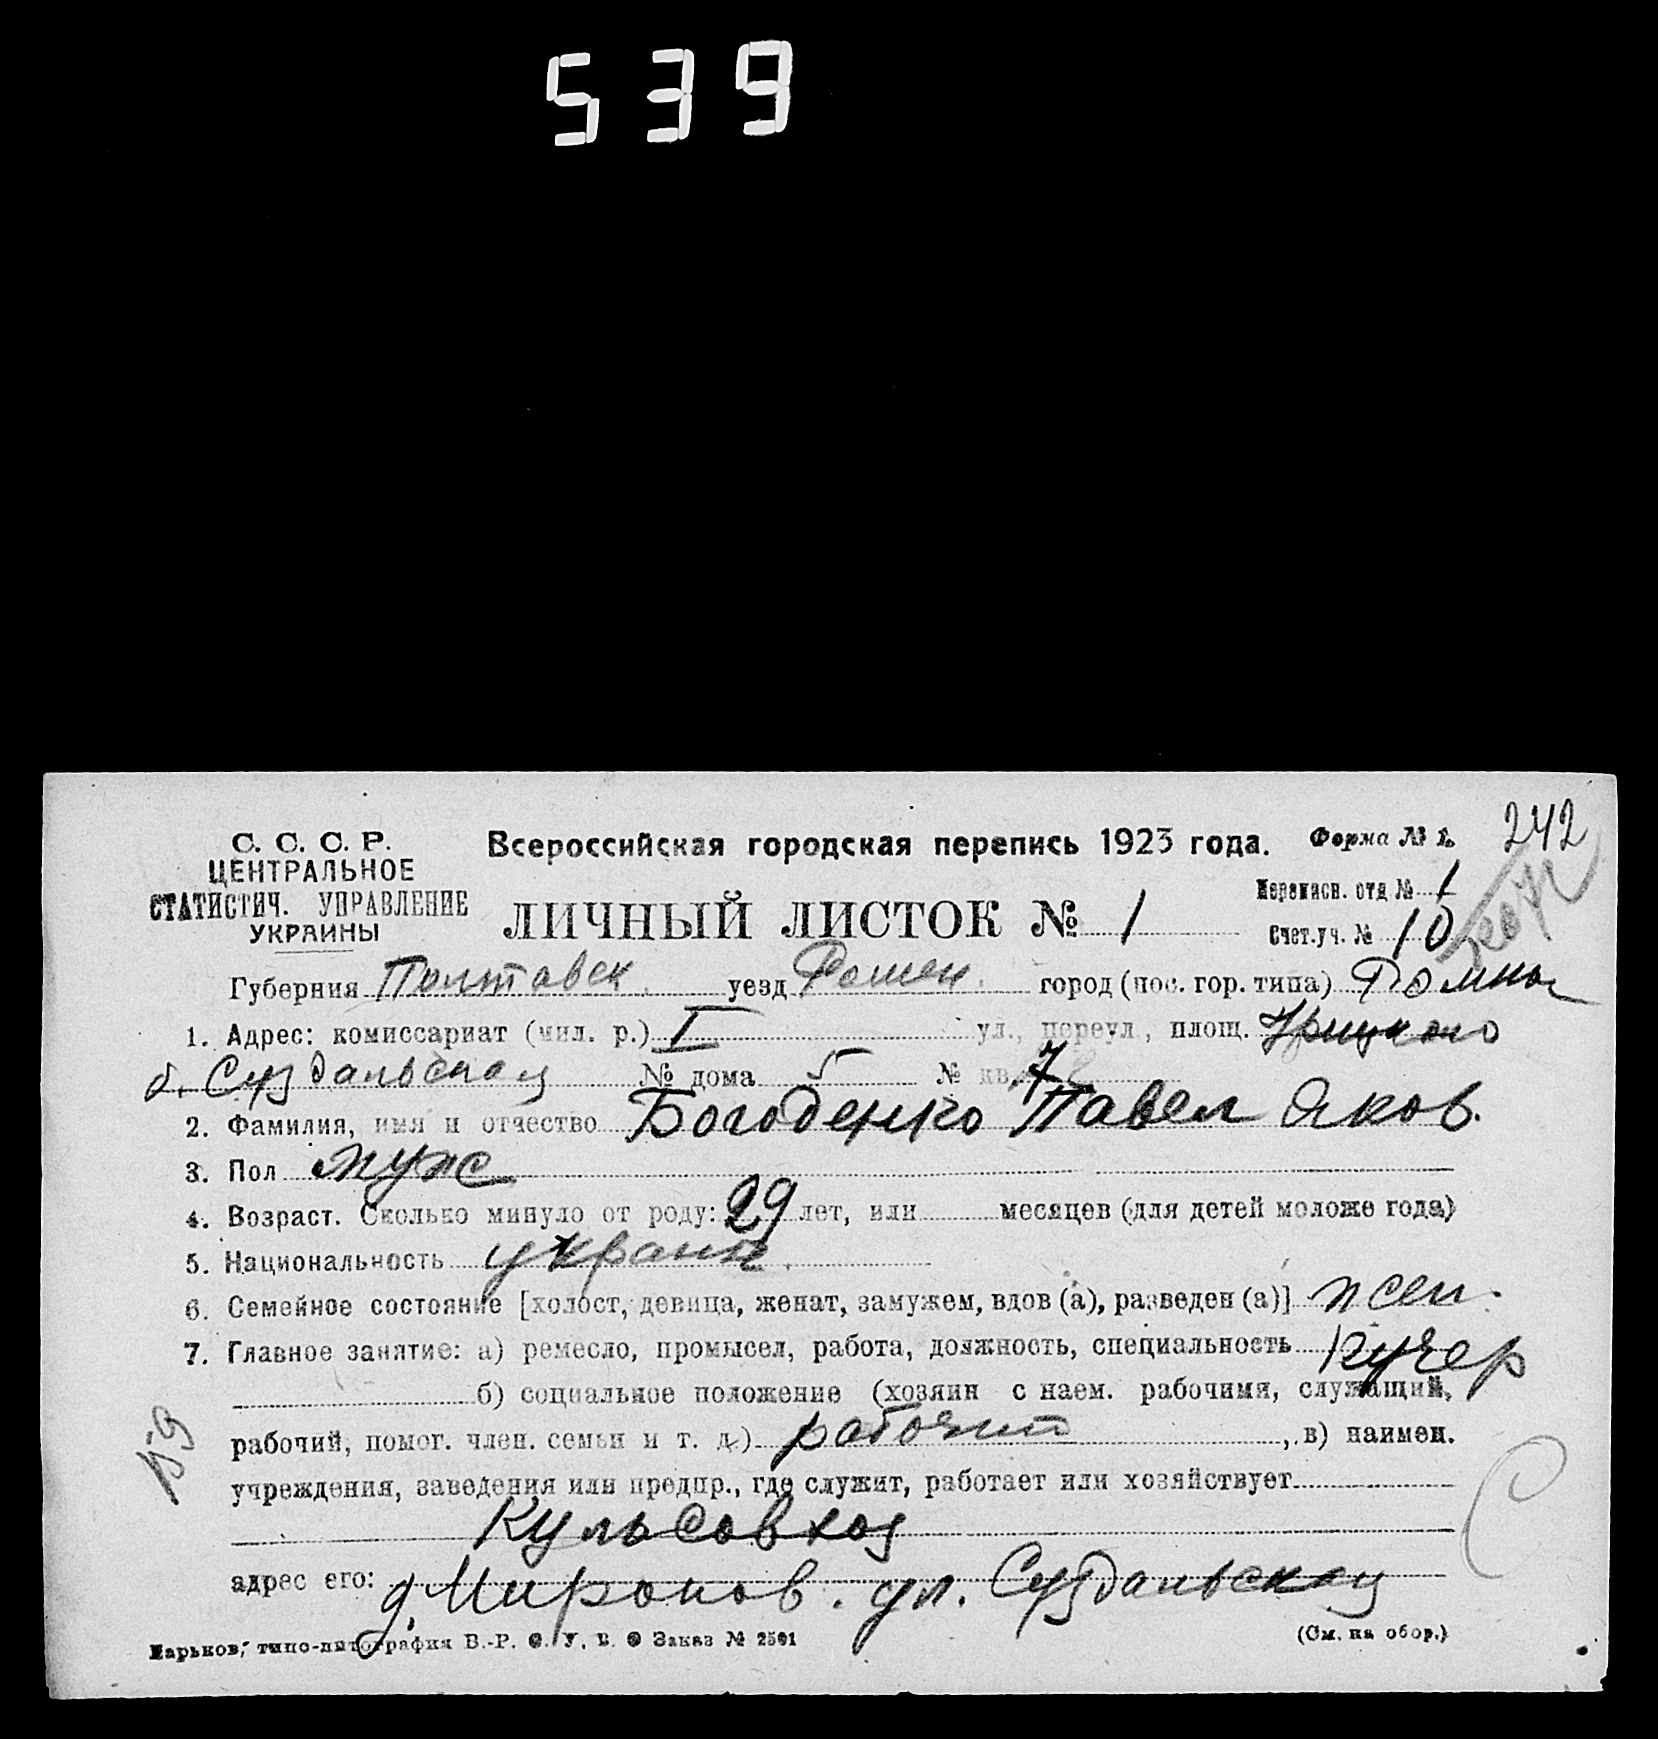 539
242
С. С. С. Р.
ЦЕНТРАЛЬНОЕ
СТАТИСТИЧ. УПРАВЛЕНИЕ
УКРАИНЫ
Всероссийская городская перепись 1923 года. Форма № 1.
ЛИЧНЫЙ ЛИСТОК № 1
Переписн. отд № 1
Счет.уч. № 10
Губерния Полтавск. уезд Ромен. город (пос. гор. типа) Ромны
1. Адрес: комиссариат (мил. р.) I ул., переул., площ. Урицкого
б. Суздальская № дома 5 № кв. 7
2. Фамилия, имя и отчество Богоденко Павел Яков.
3. Пол муж
4. Возраст. Сколько минуло от роду: 29 лет, или месяцев (для детей моложе года)
5. Национальность украин.
6. Семейное состояние [холост, девица, женат, замужем, вдов (а), разведен (а)] жен.
7. Главное занятие: а) ремесло, промысел, работа, должность, специальность кучер
б) социальное положение (хозяин с наем. рабочими, служащий,
рабочий, помог. член. семьи и т. д.) рабочий, в) наимен.
учреждения, заведения или предпр., где служит, работает или хозяйствует
Кульсовхоз
адрес его: д. Миронов. ул. Суздальская
Харьков, типо-литография В.-Р. С. У. В. Заказ № 2501
(См. на обор.)